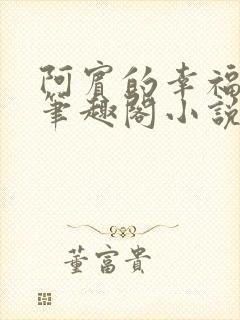 阿賓的幸福
筆趣閣小說
董富貴